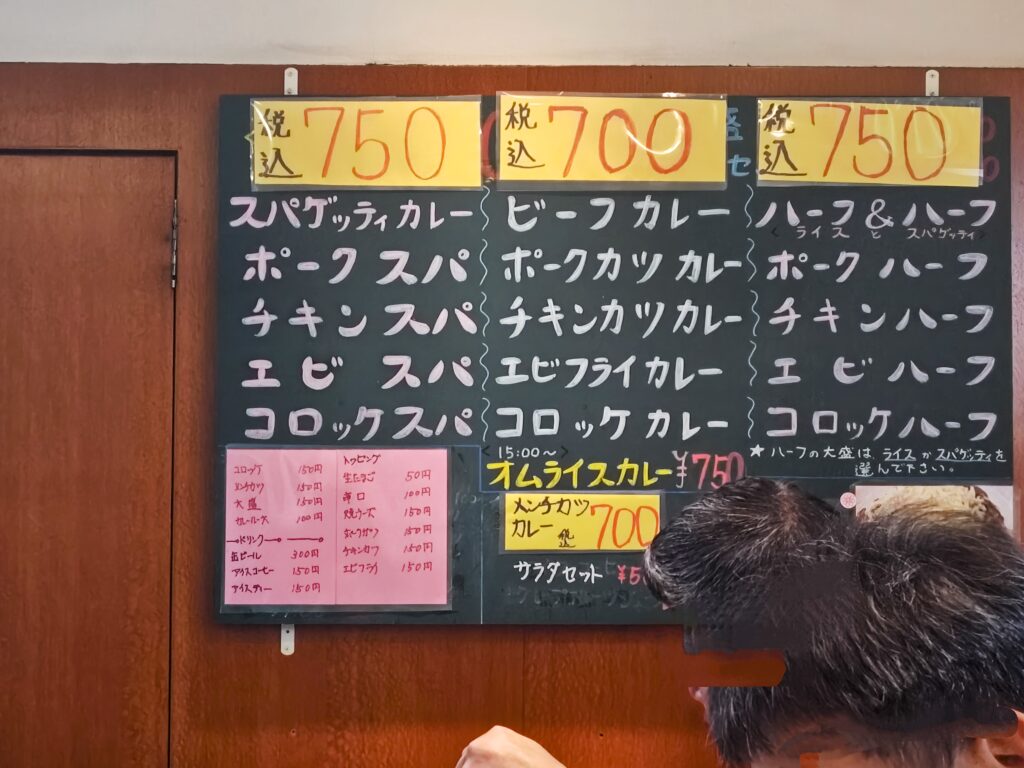 税込 750
スパゲッティカレー
ポークスパ
チキンスパ
エビスパ
コロッケスパ
税込 700
ビーフカレー
ポークカツカレー
チキンカツカレー
エビフライカレー
コロッケカレー
<15:00~>
オムライスカレー ¥750
メンチカツ
カレー 税込 700
サラダセット ¥5
税込 750
ハーフ&ハーフ
<ライスとスパゲッティ>
ポークハーフ
チキンハーフ
エビハーフ
コロッケハーフ
★ハーフの大盛は ライスかスパゲッティを
選んで下さい。
コロッケ 150円
メンチカツ 150円
大盛 150円
カレールース 100円
ドリンク
缶ビール 300円
アイスコーヒー 150円
アイスティー 150円
トッピング
生たまご 50円
辛口 100円
150円
150円
チキンカツ 150円
エビフライ 150円